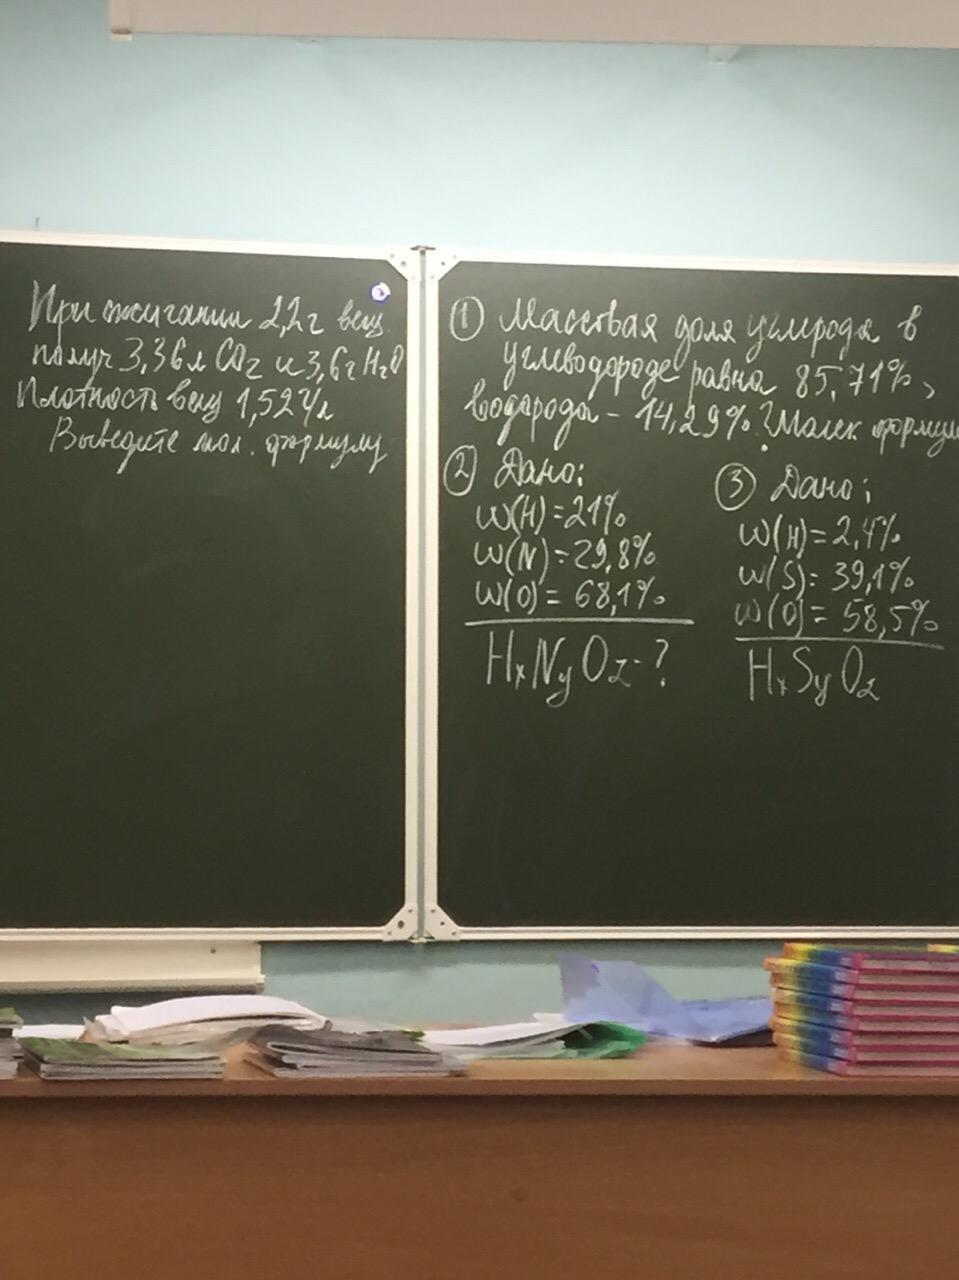 При сжигании 2,2г вещ.
получ 3,36л CO2 и 3,6г H2O
Плотность вещ 1,52 г/л
Выведите мол. формулу
① Массовая доля углерода в
углеводороде равна 85,71%,
водорода - 14,29%. ? Молек формула
② Дано:
w(H)=21%
w(N)=29,8%
w(O)= 68,1%
HxNyOz-?
③ Дано:
w(H)=2,4%
w(S)= 39,1%
w(O)= 58,5%
HxSyOz